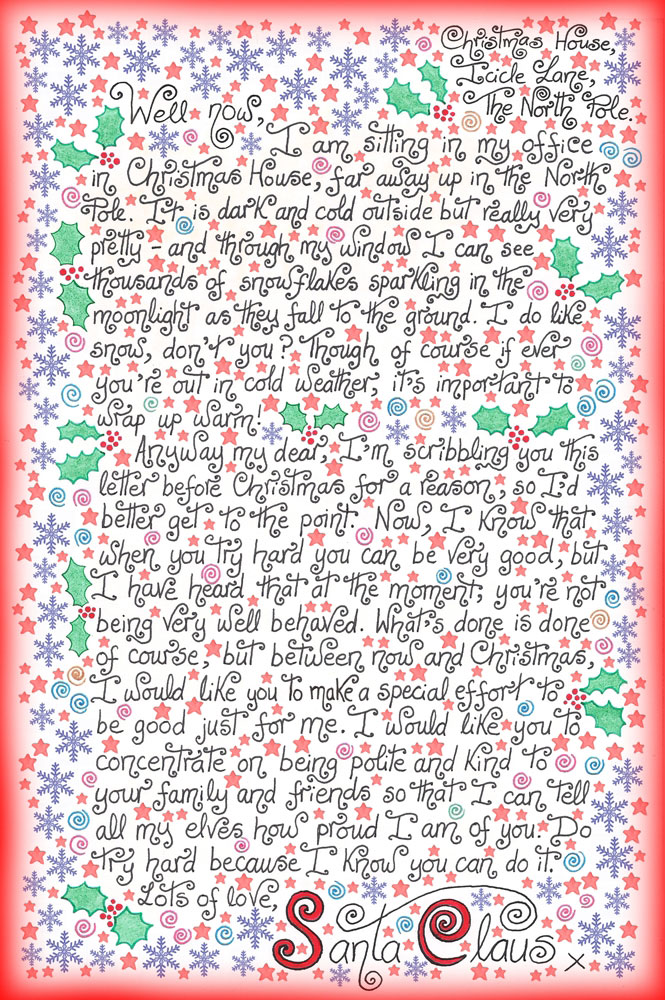 Christmas House,
Icicle Lane,
The North Pole.
Well now,
I am sitting in my office
in Christmas House, far away up in the North
Pole. It is dark and cold outside but really very
pretty - and through my window I can see
thousands of snowflakes sparkling in the
moonlight as they fall to the ground. I do like
snow, don't you? Though of course if ever
you're out in cold weather, it's important to
wrap up warm!
Anyway my dear, I'm scribbling you this
letter before Christmas for a reason, so I'd
better get to the point. Now, I know that
when you try hard you can be very good, but
I have heard that at the moment, you're not
being very well behaved. What's done is done
of course, but between now and Christmas,
I would like you to make a special effort to
be good just for me. I would like you to
concentrate on being polite and kind to
your family and friends so that I can tell
all my elves how proud I am of you. Do
try hard because I know you can do it.
Lots of love,
Santa Claus x